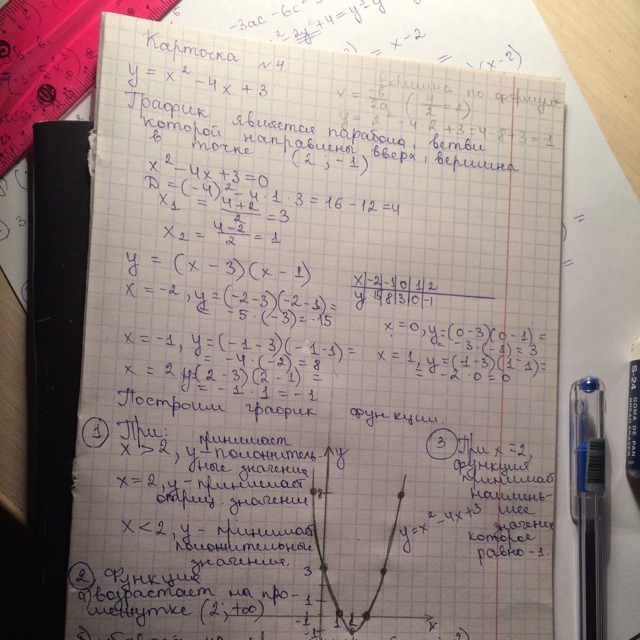 -3ас - 6с²
= x - 2
Карточка №4
y = x² - 4x + 3
вершина по формуле
(2; -1)
y = 2² - 4·2 + 3 = 4 - 8 + 3 = -1
График является парабола, ветви
которой направлены вверх, вершина
в точке (2; -1)
x² - 4x + 3 = 0
D = (-4)² - 4·1·3 = 16 - 12 = 4
x₁ = (4+2)/2 = 3
x₂ = (4-2)/2 = 1
y = (x - 3)(x - 1)
x -2 -1 0 1 2
y 15 8 3 0 -1
x = -2, y = (-2-3)(-2-1) =
= -5·(-3) = 15
x = 0, y = (0-3)(0-1) =
= -3·(-1) = 3
x = -1, y = (-1-3)(-1-1) =
= -4·(-2) = 8
x = 1, y = (1-3)(1-1) =
= -2·0 = 0
x = 2 y(2-3)(2-1) =
= -1·1 = -1
Построим график функции
① При:
x > 2, y - принимает
положитель-
ные значения
x = 2, y - принимает
отриц. значения
x < 2, y - принимает
положительные
значения.
② Функция
возрастает на про-
межутке (2; +∞)
y
8
3
1
-1
1
x
y = x² - 4x + 3
③ При x = 2,
функция
принимает
наимень-
шее
значение
которое
равно -1.